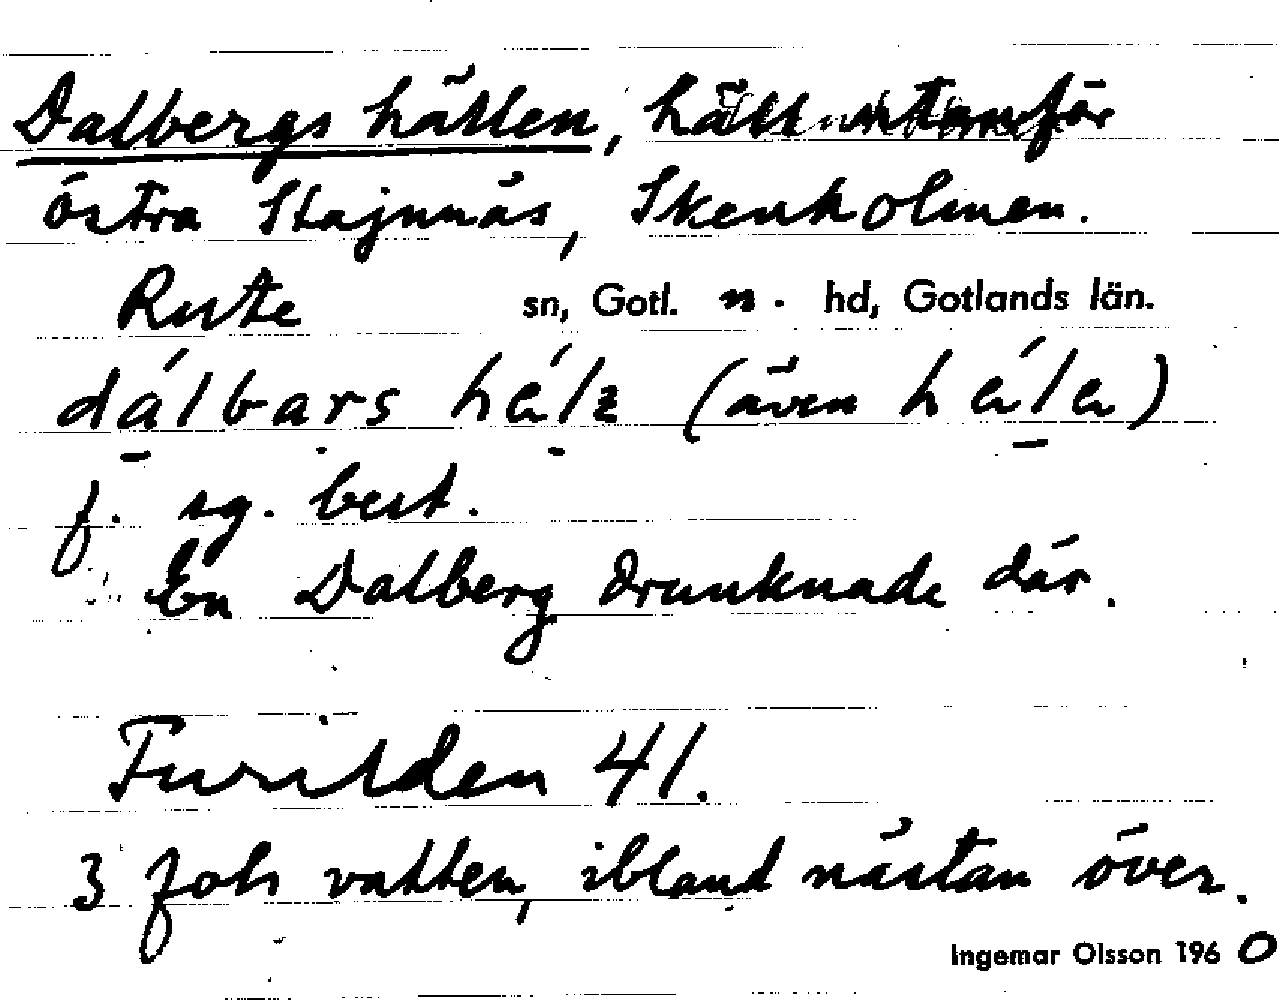 Dalbergs hällen, häll utanför
östra Stajnnäs, Skenholmen.
Rute sn, Gotl. n. hd, Gotlands län.
dálbars (även
f. sg. best.
En Dalberg drunknade där.
Furilden 41.
3 fots vatten, ibland nästan över.
Ingemar Olsson 1960